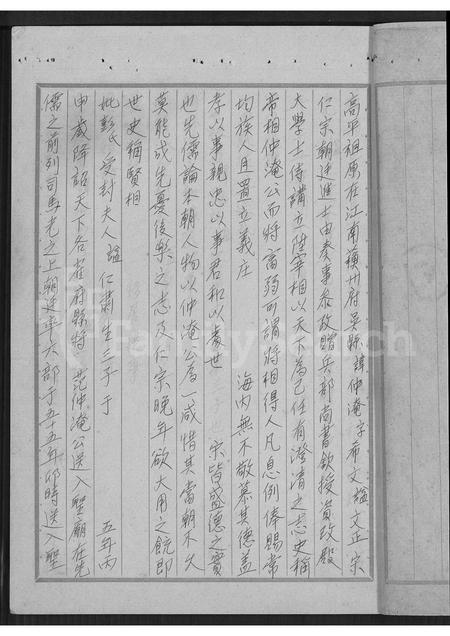 高平祖原在江南蘓州府吳縣諱仲淹字希文諡文正宗
仁宗朝廷進士由奏事叅政贈兵部尚書欽授資政殿
大學士侍講立陞宰相以天下為己任有澄清之志史稱
帝相仲淹公而將富弼可謂將相得人凡恩例俸賜常
均族人且置立義庄 海內無不敬慕其德蓋
孝以事親忠以事君和以處世 宗皆盛德之實
也先儒論本朝人物以仲淹公為一咸惜其當朝不久
莫能成先憂後樂之志及仁宗晚年欲大用之既即
世史稱賢相
妣彭氏 受封夫人 諡仁肅生三子于 五年丙
申歲降詔天下各省府縣特 范仲淹公送入聖廟在先
儒之前列司馬光之上朝廷牽六部于五十五年卯時送入聖
FamilySearch